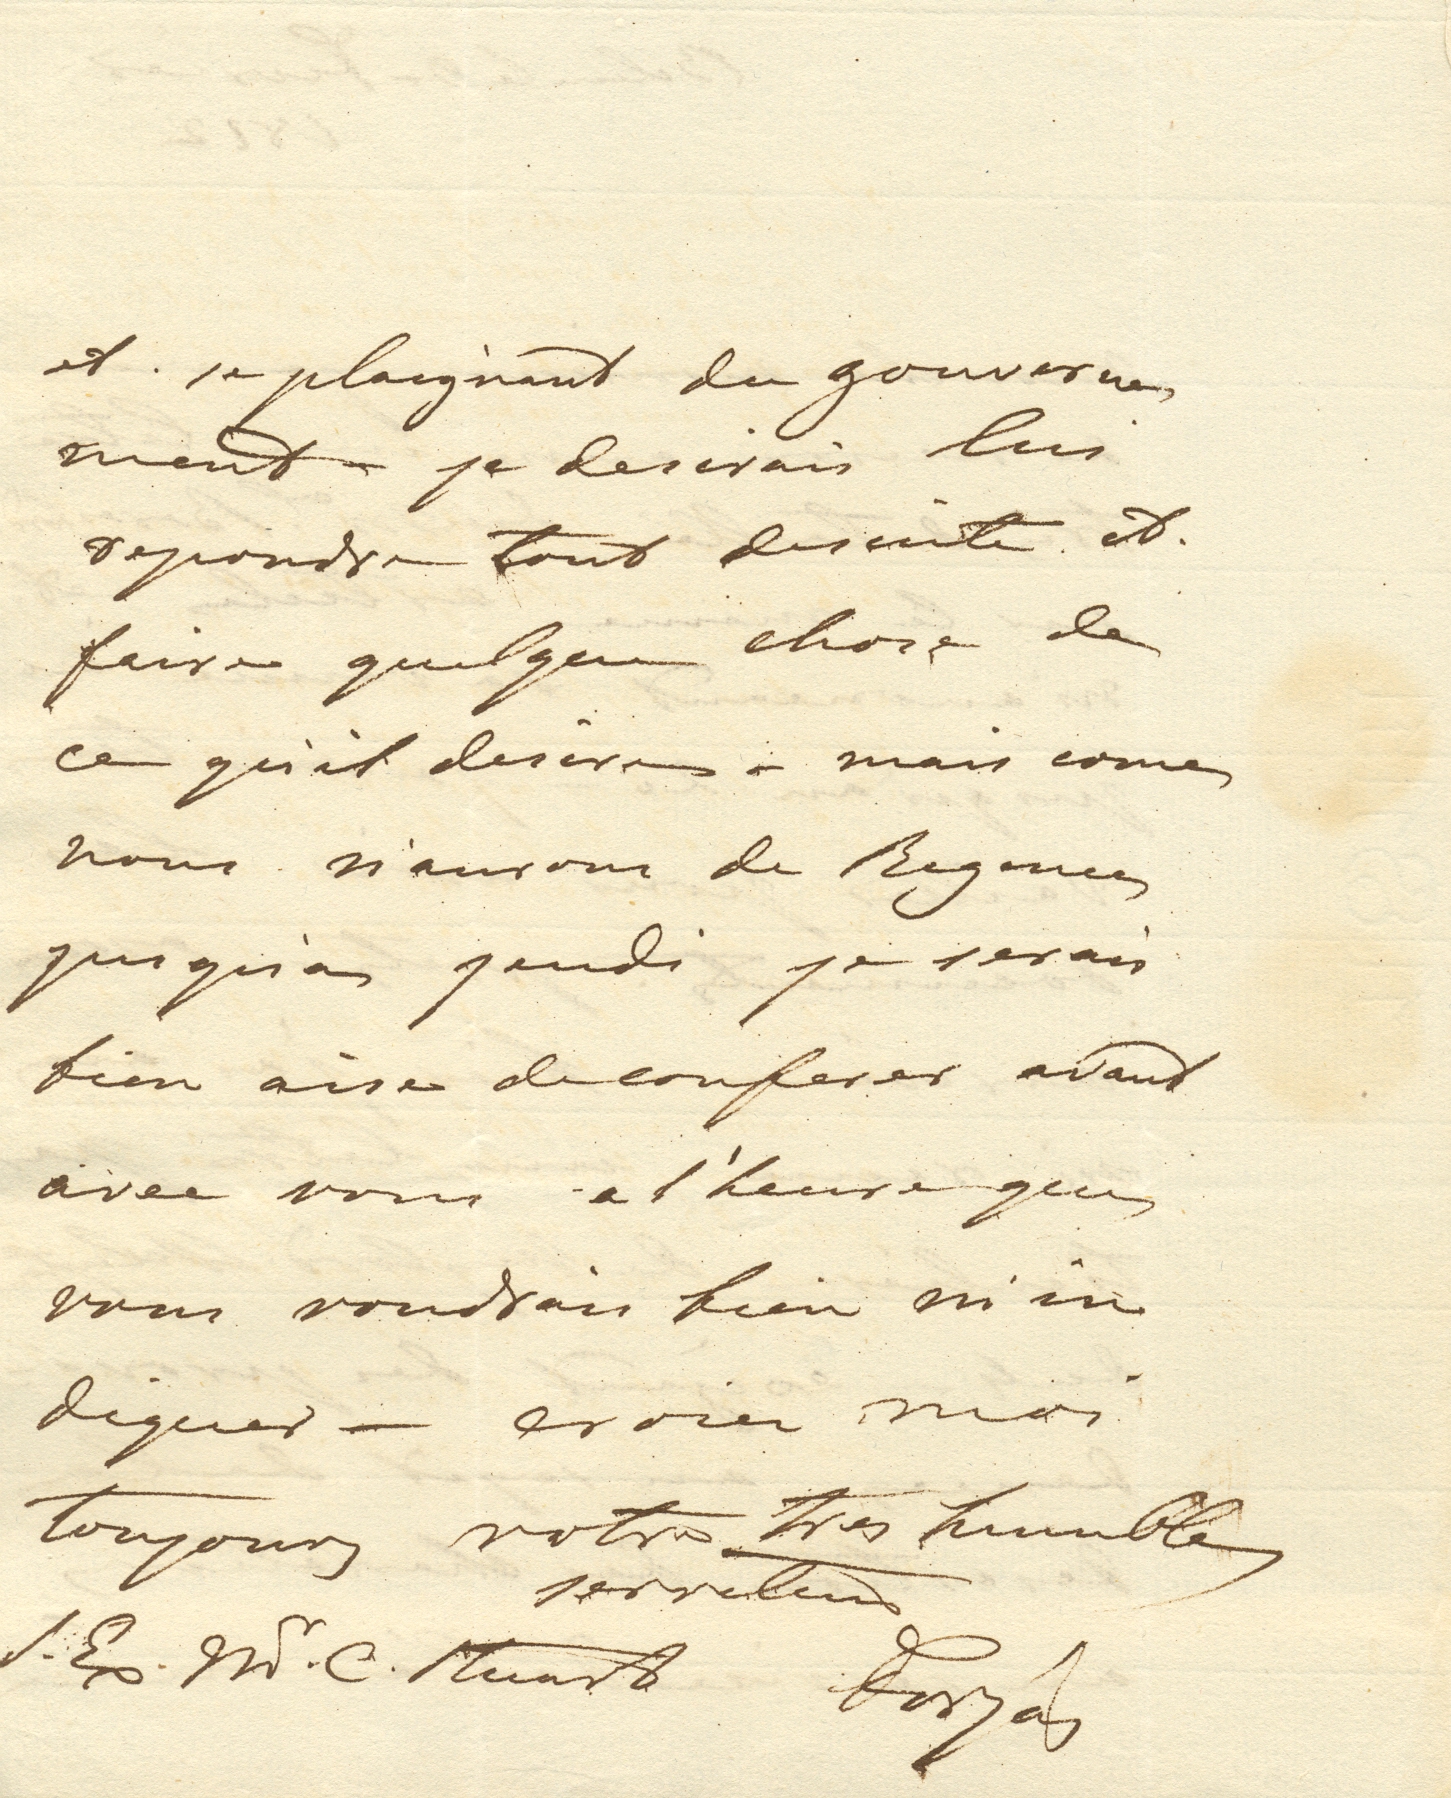 et. se plaignant du gouverne
ment - je desirais lui
repondre tout desuite et.
faire quelque chose de
ce qu'il desire - mais come
nous n'aurons de Regence
jusqu'a jeudi je serais
bien aise de conferer avant
avec vous a l'heure que
vous voudrais bien m'in
diquer - croies moi
toujours votre tres humble
serviteur
S. Ex. Mr. C. Stuart Forjás